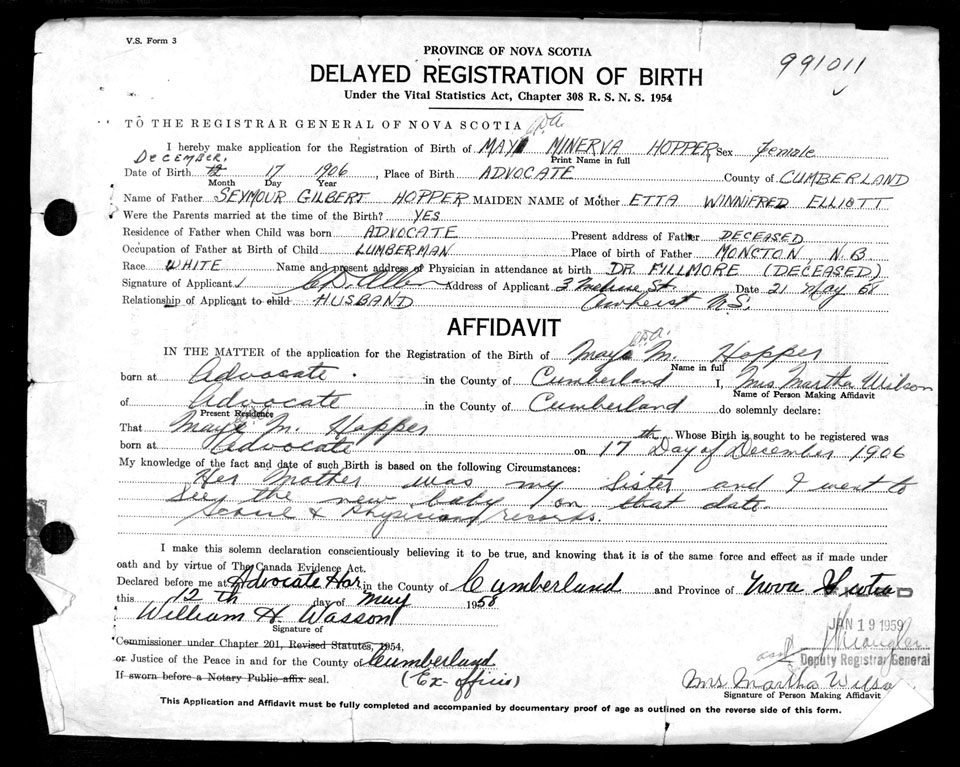 V.S. Form 3
PROVINCE OF NOVA SCOTIA
991011
DELAYED REGISTRATION OF BIRTH
Under the Vital Statistics Act, Chapter 308 R. S. N. S. 1954
TO THE REGISTRAR GENERAL OF NOVA SCOTIA
I hereby make application for the Registration of Birth of MAY MINERVA HOPPER, Sex Female
Print Name in full
DECEMBER,
Date of Birth 17 1906, Place of Birth ADVOCATE County of CUMBERLAND
Month Day Year
Name of Father SEYMOUR GILBERT HOPPER MAIDEN NAME of Mother ETTA WINNIFRED ELLIOTT
Were the Parents married at the time of the Birth? YES
Residence of Father when Child was born ADVOCATE Present address of Father DECEASED
Occupation of Father at Birth of Child LUMBERMAN Place of birth of Father MONCTON, N.B.
Race WHITE Name and present address of Physician in attendance at birth DR. FILLMORE (DECEASED)
Signature of Applicant Address of Applicant 3 St. Date 21 May 58
Relationship of Applicant to child HUSBAND Amherst N.S.
AFFIDAVIT
IN THE MATTER of the application for the Registration of the Birth of May M. Hopper
Name in full
born at Advocate. in the County of Cumberland I, Mrs. Martha Wilson
Name of Person Making Affidavit
of Advocate in the County of Cumberland do solemnly declare:
Present Residence
That May M. Hopper Whose Birth is sought to be registered was
born at Advocate on 17th Day of December 1906
My knowledge of the fact and date of such Birth is based on the following Circumstances:
Her Mother was my Sister and I went to
see the new baby on that date.
School & Physician records.
I make this solemn declaration conscientiously believing it to be true, and knowing that it is of the same force and effect as if made under
oath and by virtue of The Canada Evidence Act.
Declared before me at Advocate Har in the County of Cumberland and Province of Nova Scotia
this 12th day of May 1958
William H. Wasson
Signature of
JAN 19 1959
Commissioner under Chapter 201, Revised Statutes, 1954,
or Justice of the Peace in and for the County of Cumberland
Deputy Registrar General
If sworn before a Notary Public affix seal.
(Ex-officio)
Mrs Martha Wilso
Signature of Person Making Affidavit
This Application and Affidavit must be fully completed and accompanied by documentary proof of age as outlined on the reverse side of this form.